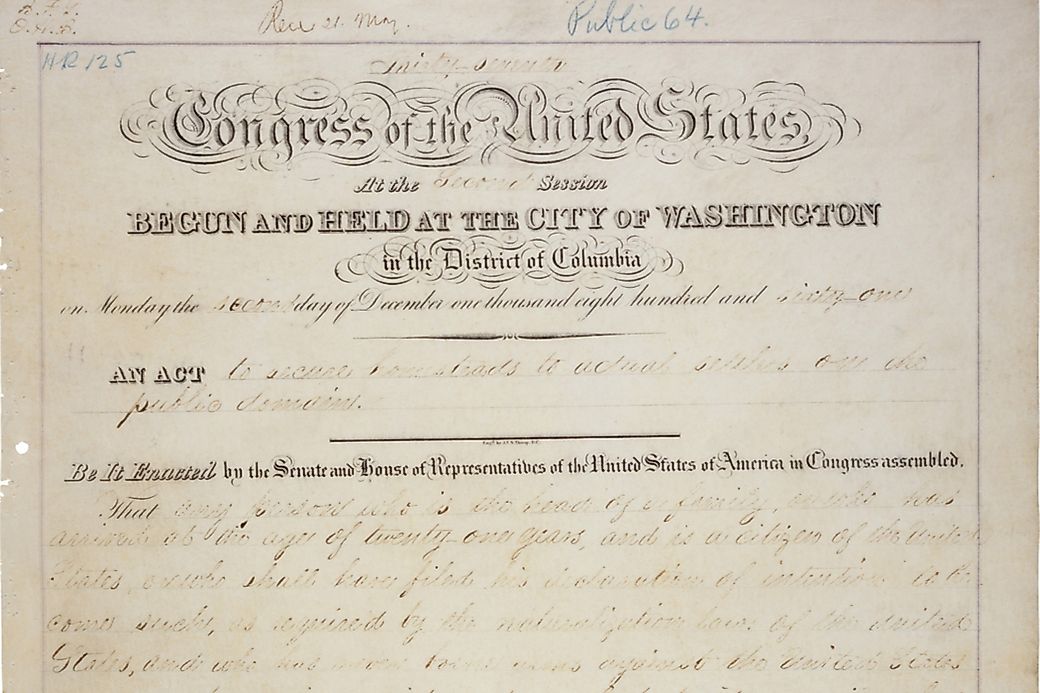 Rec 21. May.
Public 64.
HR 125
Thirty-seventh
Congress of the United States,
At the Second Session
BEGUN AND HELD AT THE CITY OF WASHINGTON
in the District of Columbia
on Monday the second day of December one thousand eight hundred and sixty-one
AN ACT to secure homesteads to actual settlers on the
public domain.
Be It Enacted by the Senate and House of Representatives of the United States of America in Congress assembled.
That any person who is the head of a family, or who has
arrived at the age of twenty-one years, and is a citizen of the United
States, or who shall have filed his declaration of intention to be
come such, as required by the naturalization laws of the United
States, and who has never borne arms against the United States